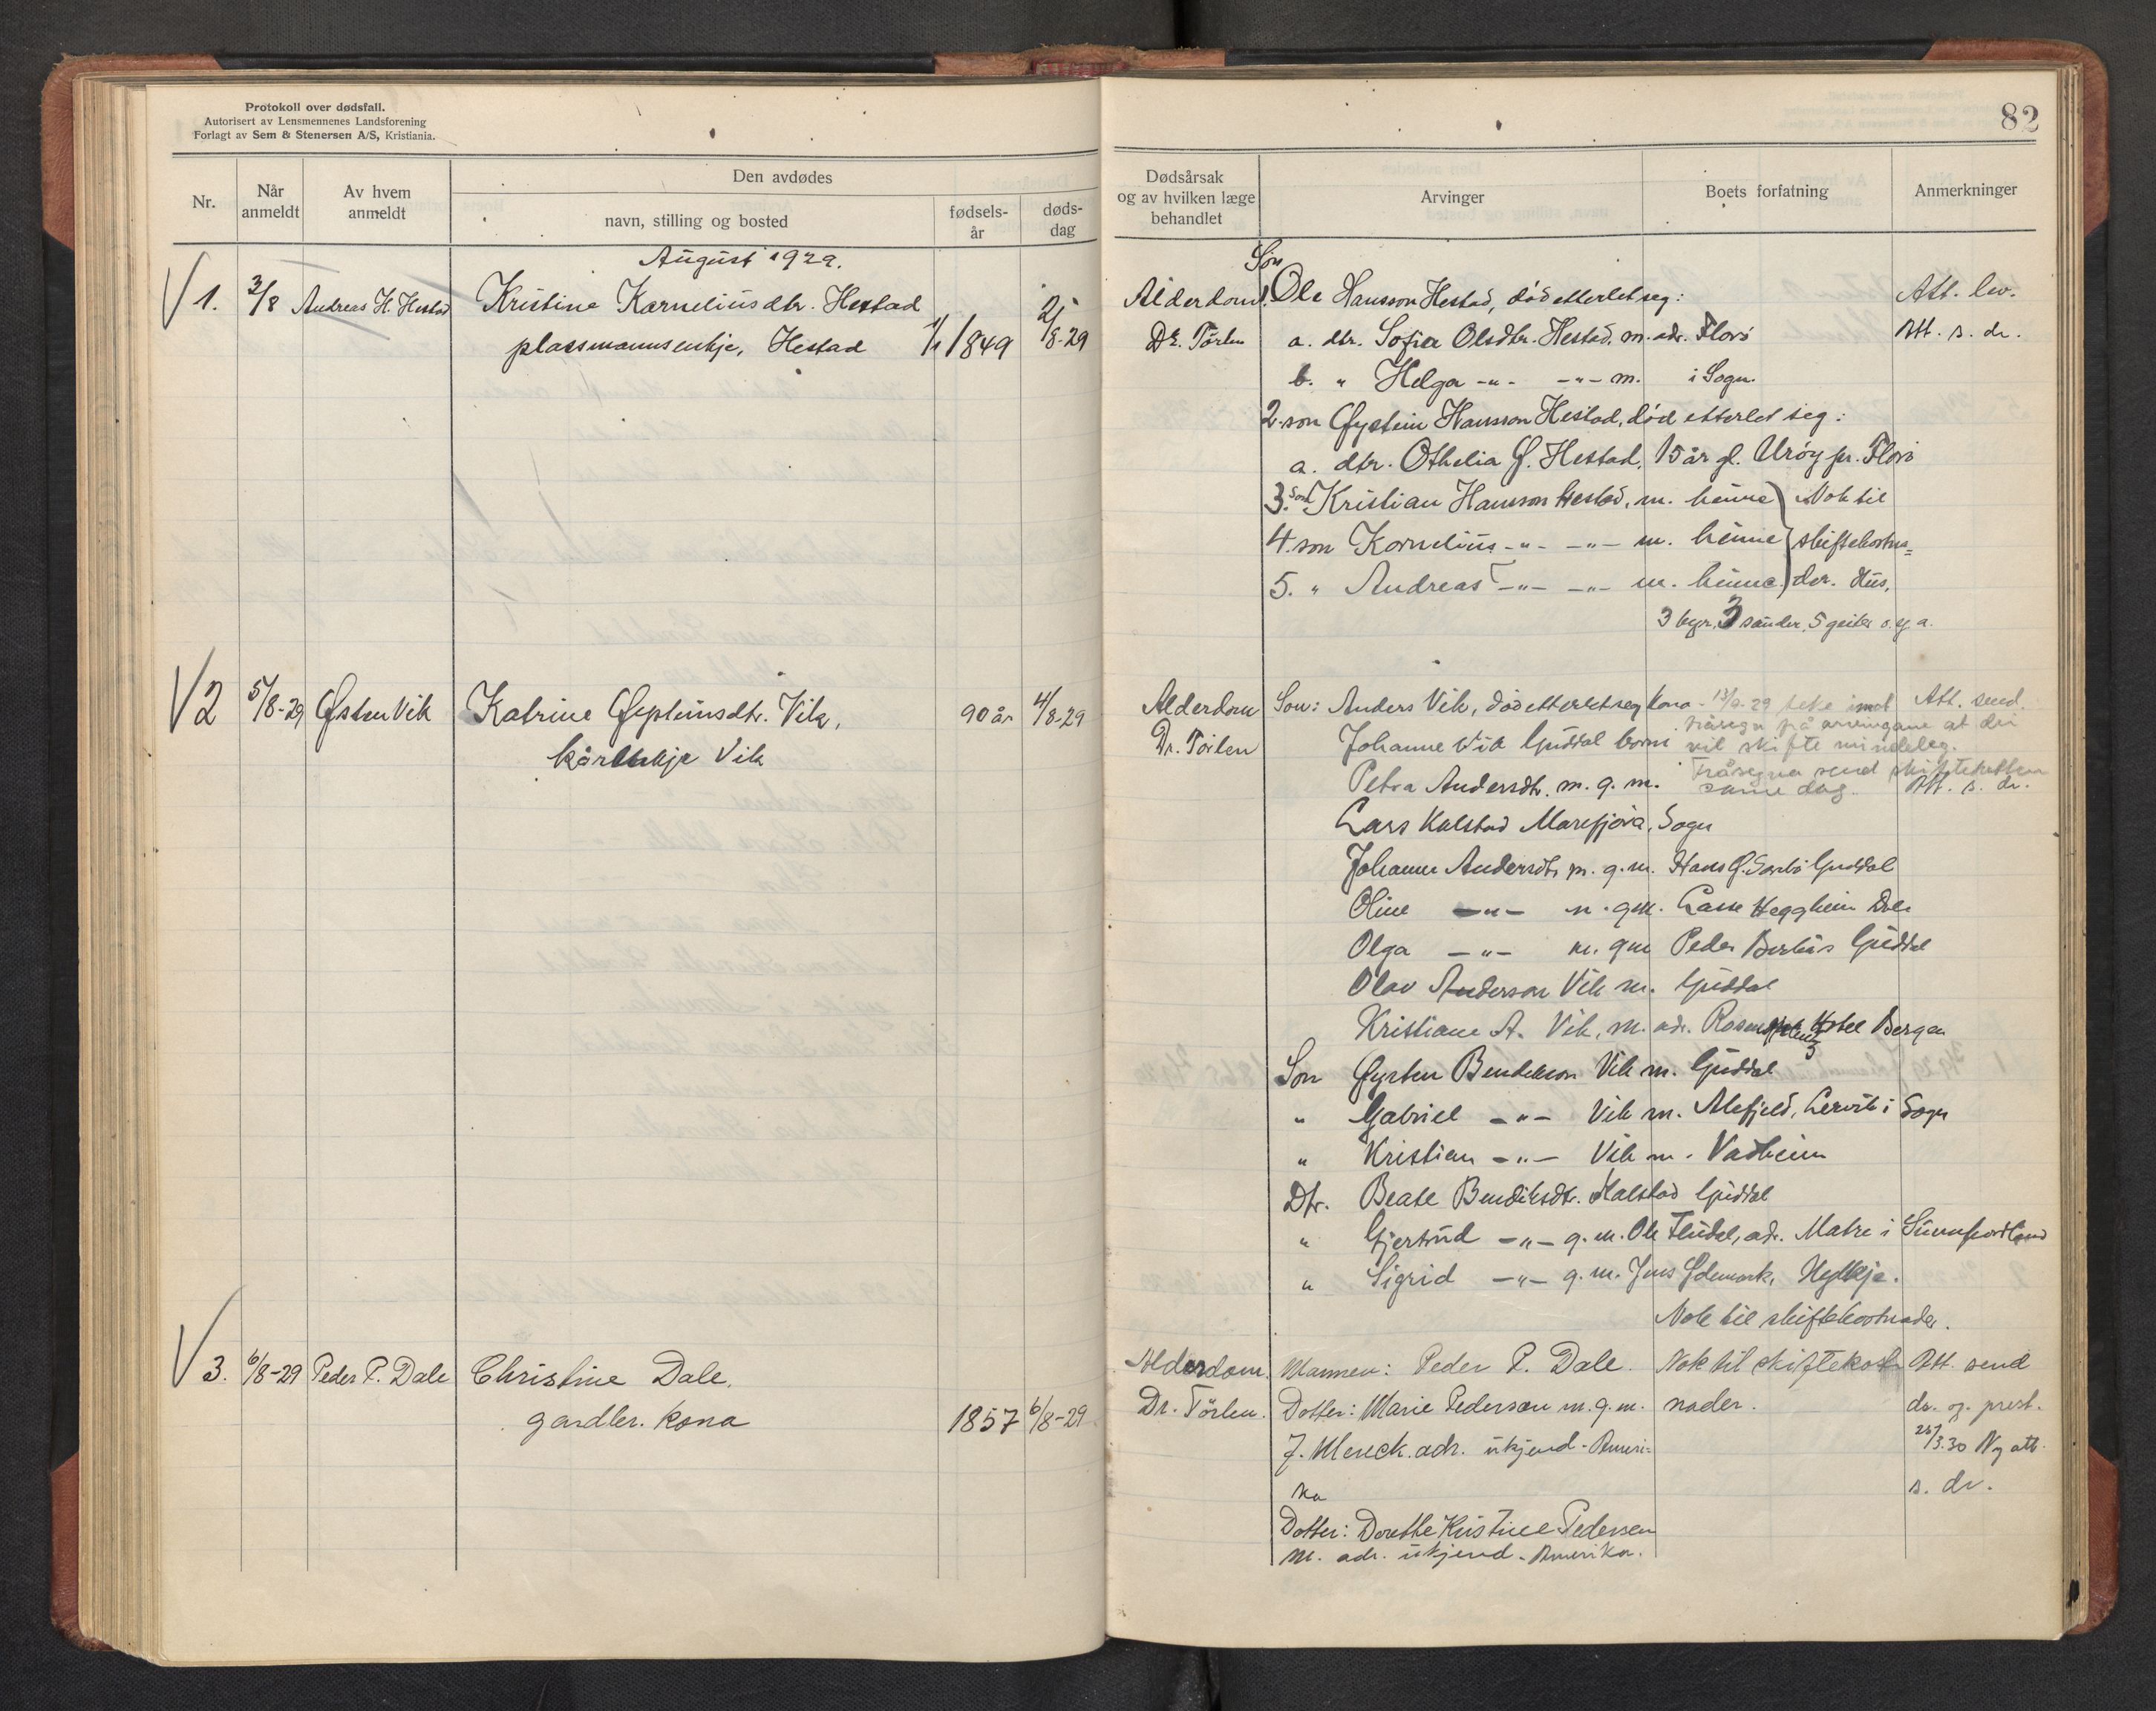 Protokoll over dødsfall.
Autorisert av Lensmennenes Landsforening
Forlagt av Sem & Stenersen A/S, Kristiania.
82
Nr.
Når anmeldt
Av hvem anmeldt
Den avdødes
navn, stilling og bosted
fødsels-år
døds-dag
Dødsårsak og av hvilken læge behandlet
Arvinger
Boets forfatning
Anmerkninger
August 1929.
1. 3/8 Andreas H. Hestad Kristine Korneliusdtr. Hestad
plassmannsenkje, Hestad 1/1 1849 2/8-29
Alderdom. Son
1. Ole Hansson Hestad, død etterlet seg: Att. lev.
Dr. Törlen a. dtr. Sofia Olsdtr. Hestad. m. adr. Florö Att. s. dr.
b. " Helga -"- -"- m. i Sogn.
2. son Øystein Hansson Hestad, död etterlet seg:
a. dtr. Othelia Ø. Hestad, 15 år gl. Uröy pr. Florö
3. Son Kristian Hansson Hestad, m. heime Nok til
4. son Kornelius -"- -"- m. heime skiftekostna=
5. " Andreas -"- -"- m. heime. der. Hus,
3 kyr, 3 sauder, 5 geiter o. g. a.
2 5/8-29 Østen Vik Katrine Øysteinsdtr. Vik, 90 år 4/8-29
kårenkje Vik
Alderdom Son: Anders Vik, död etterlet seg kona - 13/8-29 teke imot Att. send.
fråsegn på arvingane at dei
Dr. Törlen Johanne Vik Guddal born vil skifte mindeleg.
Petra Andersdtr. m. g. m. Fråsegna send skifteretten
same dag. Att. s. dr.
Lars Kalstad Marifjöra, Sogn
Johanne Andersdtr m. g. m. Hans Ø. Guddal
Oline -"- m. g m. Lasse Heggheim Dale
Olga -"- m. g m Peder Guddal
Olav Anderson Vik m. Guddal
Kristiane A. Vik, m. adr. Hotel Bergen
Son Øysten Bendikson Vik m. Guddal
" Gabriel -"- Vik m. Lervik i Sogn
" Kristian -"- Vik m. Vadheim
Dtr. Beate Bendiksdtr. Kalstad Guddal
" Gjertrud -"- g. m. Ole adr. Matre i Sunnhordland
" Sigrid -"- g. m. Jens Hyllkje.
Nok til skiftekostnader.
3. 6/8-29 Peder P. Dale Christine Dale.
gardbr. kona 1857 6/8-29
Alderdom. Mannen: Peder P. Dale. Nok til skiftekost Att. send
Dr. Törlen. Dotter: Marie Pedersen m. g. m. nader. dr. og. prest.
J. Menck. adr. ukjend - Ameri= 25/3.30 Ny att.
ka s. dr.
Dotter: Dorethe Kristine Pedersen
m. adr. ukjend - Amerika.